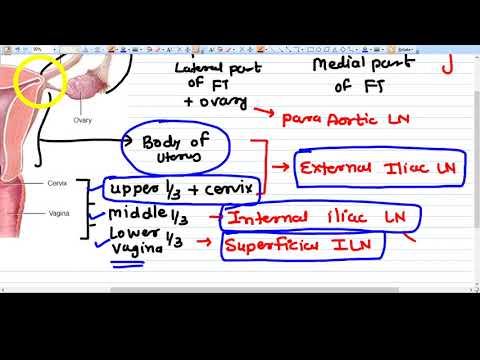 Lateral part
of FT
+ ovary
Medial part
of FT
J
para Aortic LN
Ovary
Body of
Uterus
External Iliac LN
Cervix
upper 1/3 + cervix
Vagina
middle 1/3
Internal iliac LN
Lower 1/3
vagina
Superficial ILN